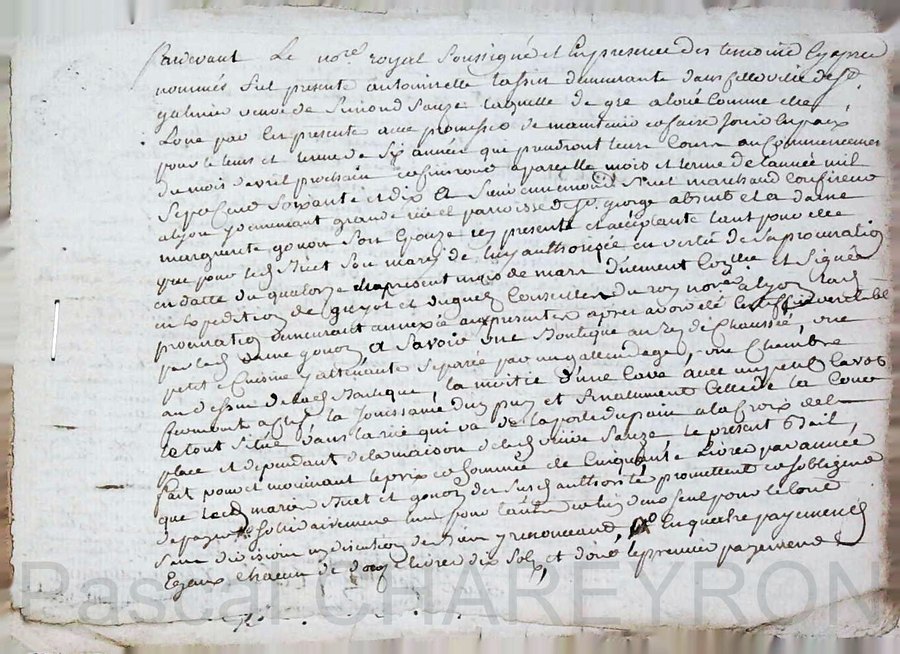 Pardevant Le no.re royal Soussigné et En presence des temoins Cy apres
nommés fut presente antoinette tassin demeurante dans cette ville de St
galmier veuve de Simond Sauze laquelle de gré a loué Comme elle
Loue par Ces presente avec promesse de maintenir et faire Jouir En paix
pour le tems et terme de Six années qui prendront leurs Cours au Commencement
du mois davril prochain et finiront a pareille mois et terme de l'année mil
Sept Cent Soixante et dix a Sieur Marchand Confiseur
a Lyon y demeurant grande rüe et parroisse de St george absent et a dame
marguerite gonon Son Epouze icy presente et acceptante tant pour elle
que pour led. Son mary de luy authorizée En vertu de Sa procuration
En datte du quatorze du present mois de mars düement Controllée et Signée
En Expedition de guyot et Conseillers du roy no.res a Lyon
procuration demeurant annexée aux presentes apres avoir été Certiffié veritable
par lad. dame gonon, a Savoir une Boutique au Rez de Chaussée, une
petite Cuisine y attenante Separée par un galandage, une Chambre
au dessus de lad. Boutique, la moitié d'une Cave avec un petit Caveau
fermant a Clef, la Jouissance du puy et finallement Celle de la Cour
le tout Situé dans la rüe qui va de la porte du pain a la Croix de la
place et dependant de la maison de lad. veuve Sauze. Le present Bail
fait pour et moyenant le prix et Somme de Cinquante Livres par année
que lesd. mariés et gonon de Susd. authorité promettent et s'obligent
de payer Solidairement l'un pour l'autre un d'eux Seul pour le tout
Sans division ny discution de Bien y renonceant, En quatre payements
Egaux chacun de douze livres dix Sols, et dont le premier payement
Pascal CHAREYRON